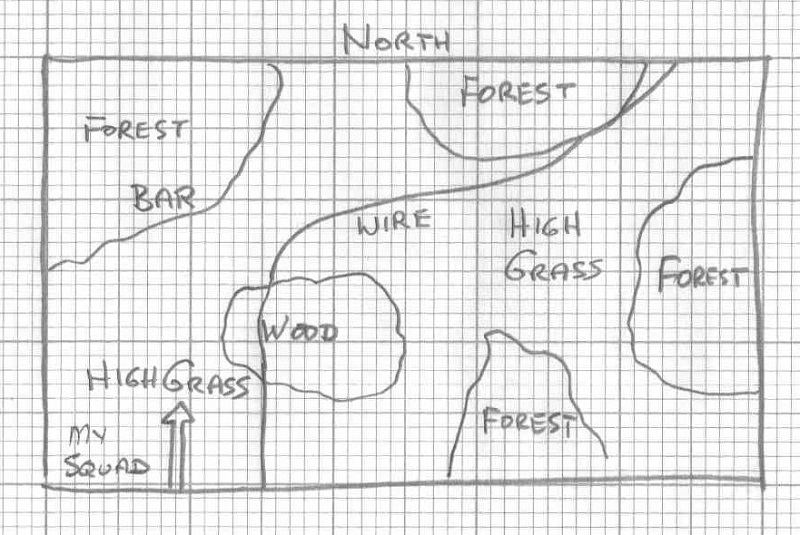 NORTH
FOREST
FOREST
BAR
WIRE
HIGH
GRASS
FOREST
WOOD
HIGH GRASS
FOREST
MY
SQUAD